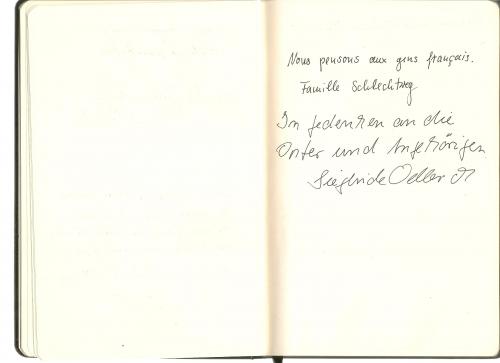 Nous pensons aux gens français.
Famille Schlechtweg
In Gedenken an die
Opfer und Angehörigen
Sieglinde